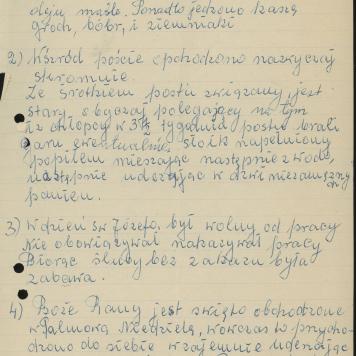 oleju masło. Ponadto jedzono kaszę
groch, bóbr, i ziemniaki
2) Wśród poście obchodzono nazwyczaj
skromnie.
Ze środkiem postu związany jest
stary obyczaj polegający na tym
iż chłopcy w 3½ tygodnia postu brali
garu ewentualnie słoik napełniony
popiłem mieszając następnie z wodą
następnie uderzając w drzwi niezamężnych
panien.
3) W dzień św Józefa był wolny od pracy
Nie obowiązywał nakazywał pracy
Biorąc śluby bez zakazu była
zabawa.
4) Boże Rany jest święto obchodzone
w Palmową Niedzielę, wówczas to przycho-
dzono do siebie wzajemnie uderzając